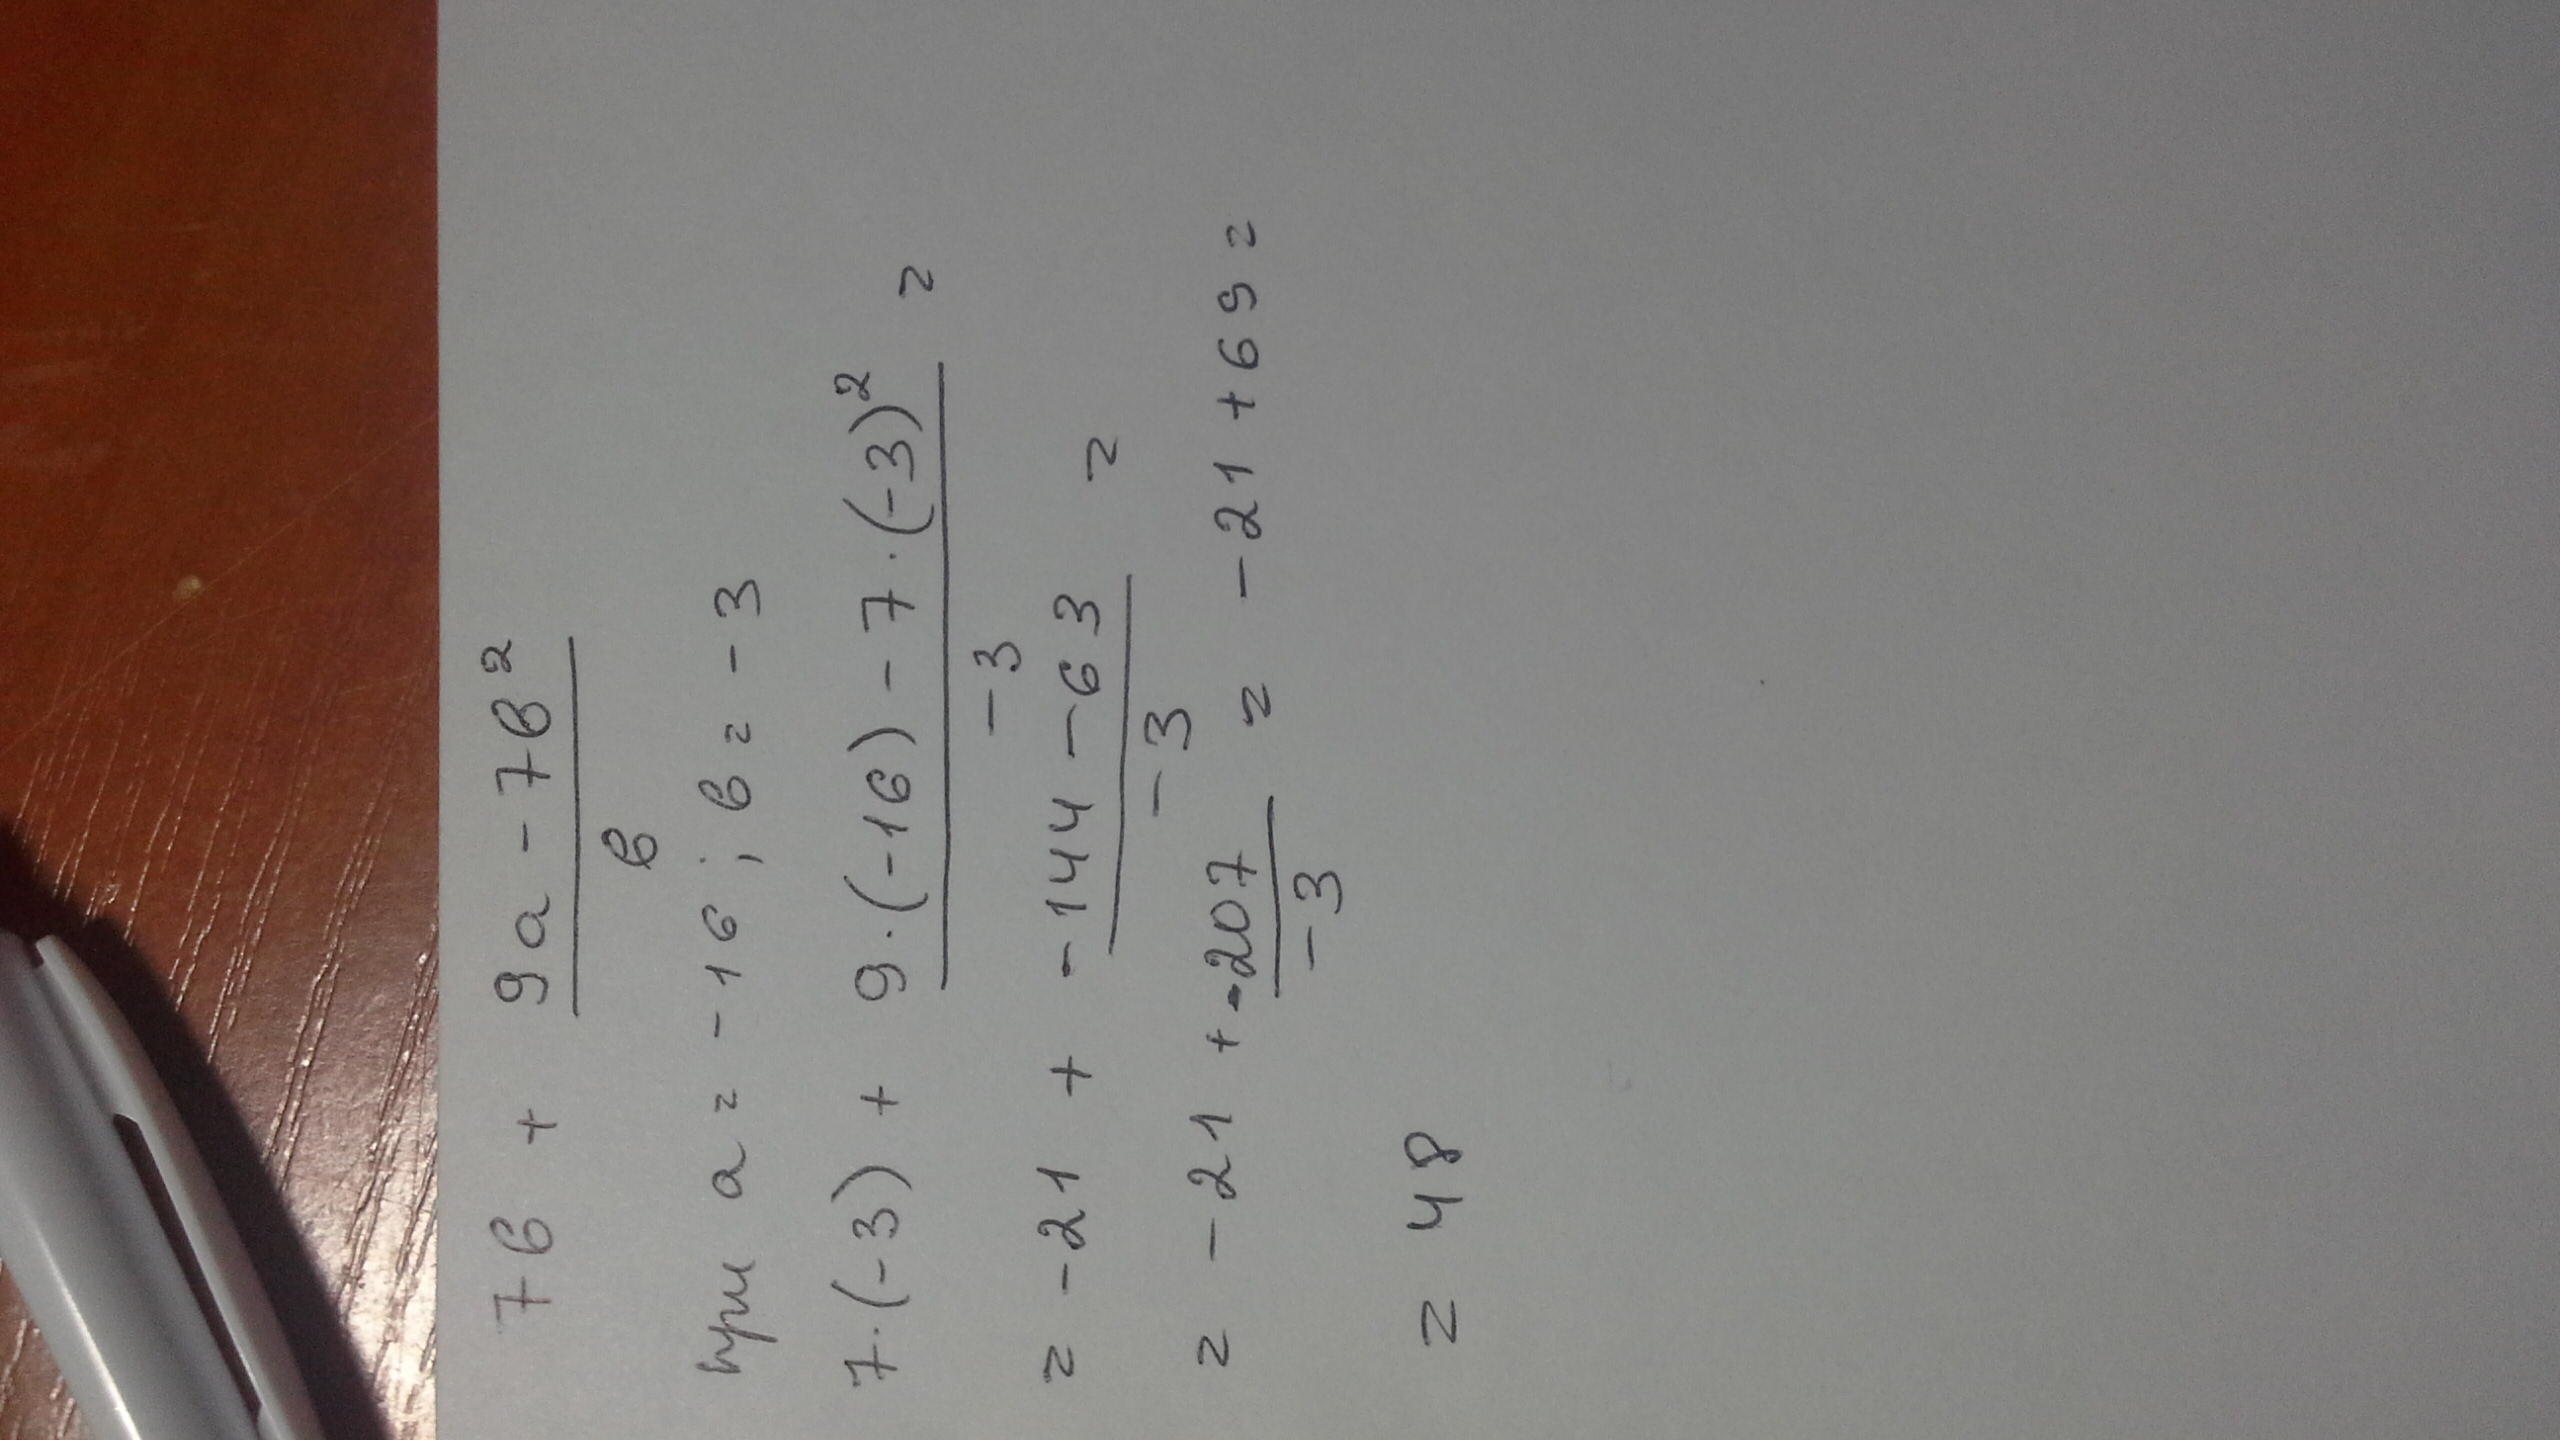 7в + (9а - 7в²)/в
при а = -16; в = -3
7·(-3) + (9·(-16) - 7·(-3)²)/-3 =
= -21 + (-144 - 63)/-3 =
= -21 + -207/-3 = -21 + 69 =
= 48